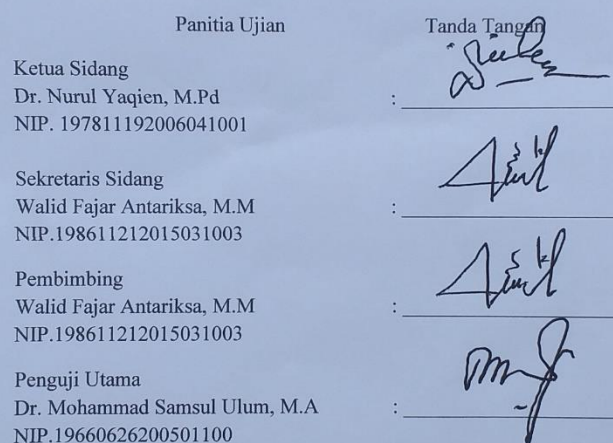 Panitia Ujian Tanda Tangan
Ketua Sidang
Dr. Nurul Yaqien, M.Pd :
NIP. 197811192006041001
Sekretaris Sidang
Walid Fajar Antariksa, M.M :
NIP.198611212015031003
Pembimbing
Walid Fajar Antariksa, M.M :
NIP.198611212015031003
Penguji Utama
Dr. Mohammad Samsul Ulum, M.A :
NIP.19660626200501100